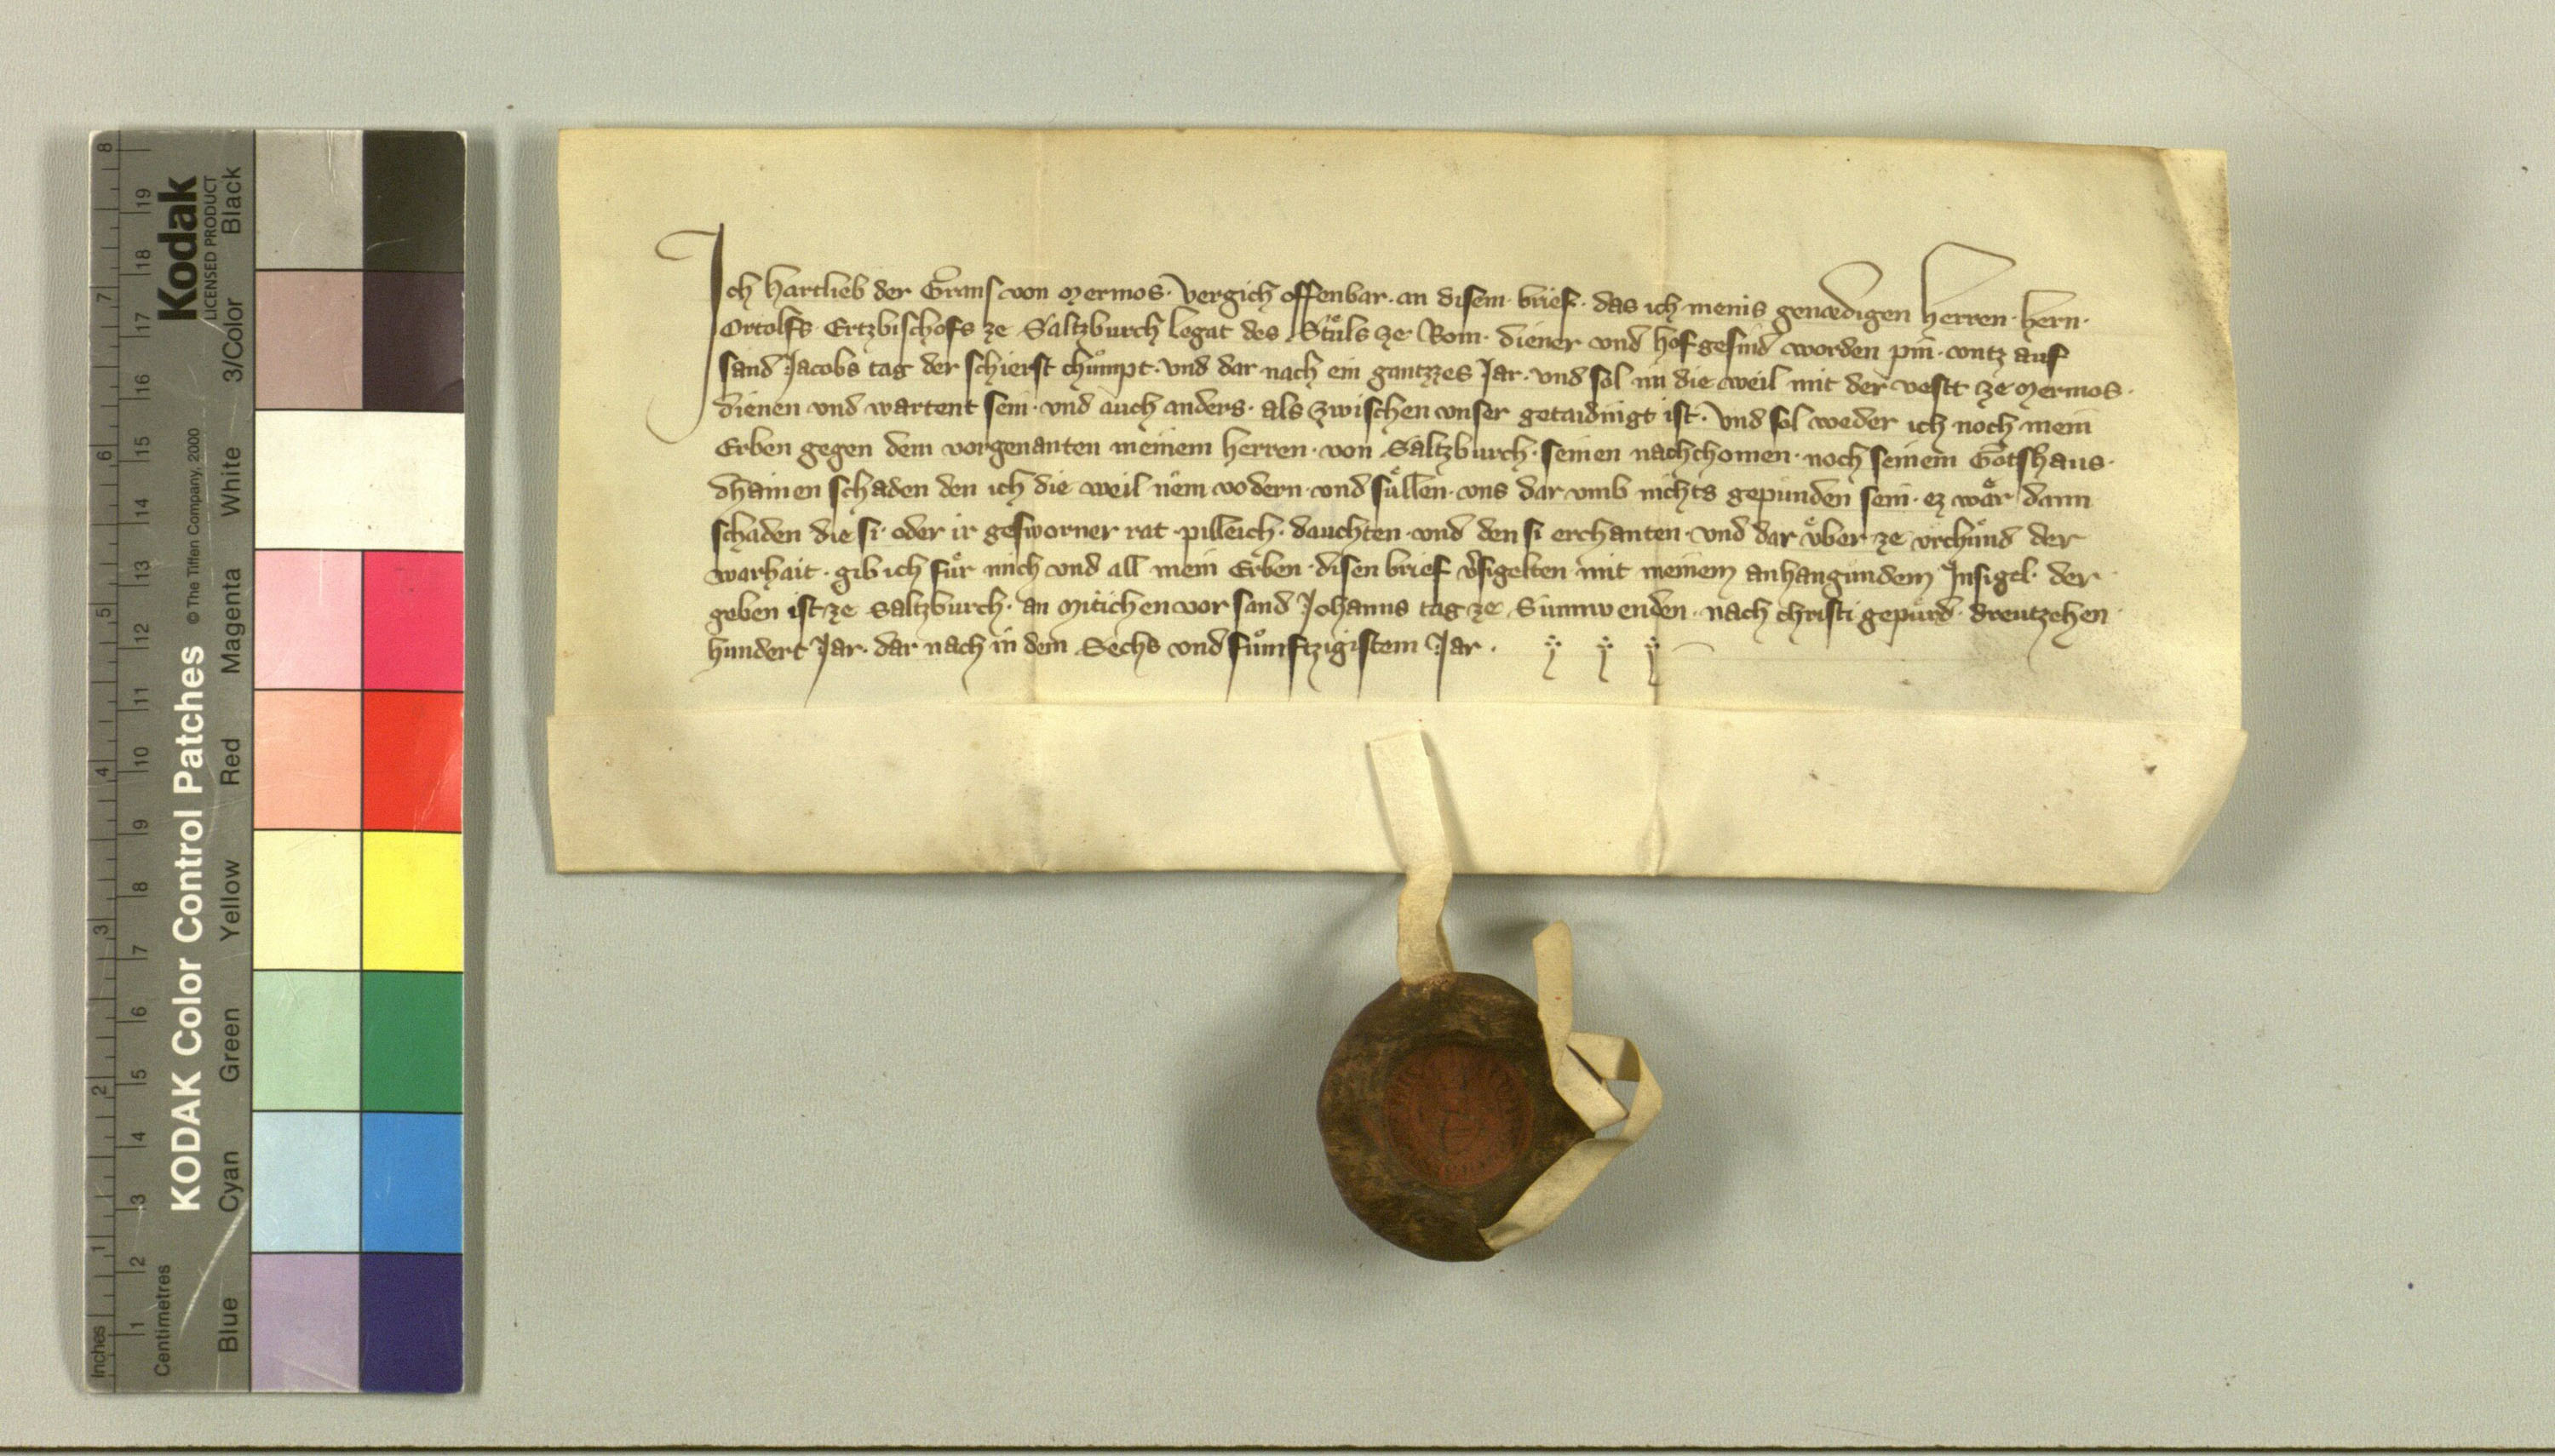 Ich hartlieb der Grans von Mermos · vergich offenbar · an disem · brief · das ich menis genædigen herren · hern ·
Ortolfs Ertzbischofs ze Saltzburch legat des Stůls ze Rom · diener vnd hofgesind worden pin · vntz auf
sand Jacobs tag der schierst chůmpt · vnd dar nach ein gantzzes Jar · vnd sol im die weil mit der vestt ze Mermos ·
dienen vnd wartent sein · vnd auch anders · als zwischen vnser getaidingt ist · vnd sol weder ich noch mein
Erben gegen dem vorgenanten meinem herren · von Saltzburch · seinen nachchomen · noch seinem Gotshaus ·
dhainen schaden den ich die weil nem vodern · vnd sůllen · vns dar vmb nichts gepunden sein · ez wår dann
schaden die si · oder ir gesworner rat · pilleich · dauchten · vnd den si erchanten · vnd dar ůber ze vrchůnd der
warhait · gib ich fůr mich vnd all mein Erben · disen brief v̾sigelten mit meinem anhangundem Insigel · der
geben ist ze Saltzburch · an Mitichen vor sand Johanns tag ze Sunnwenden · nach christi gepurd · dreutzehen
hundert Jar · dar nach in dem Sechs vnd fůmftzigistem Jar ·
KODAK Color Control Patches © The Tiffen Company, 2000
Kodak
LICENSED PRODUCT
Inches 1 2 3 4 5 6 7 8
Centimetres 1 2 3 4 5 6 7 8 9 10 11 12 13 14 15 16 17 18 19
Blue Cyan Green Yellow Red Magenta White 3/Color Black